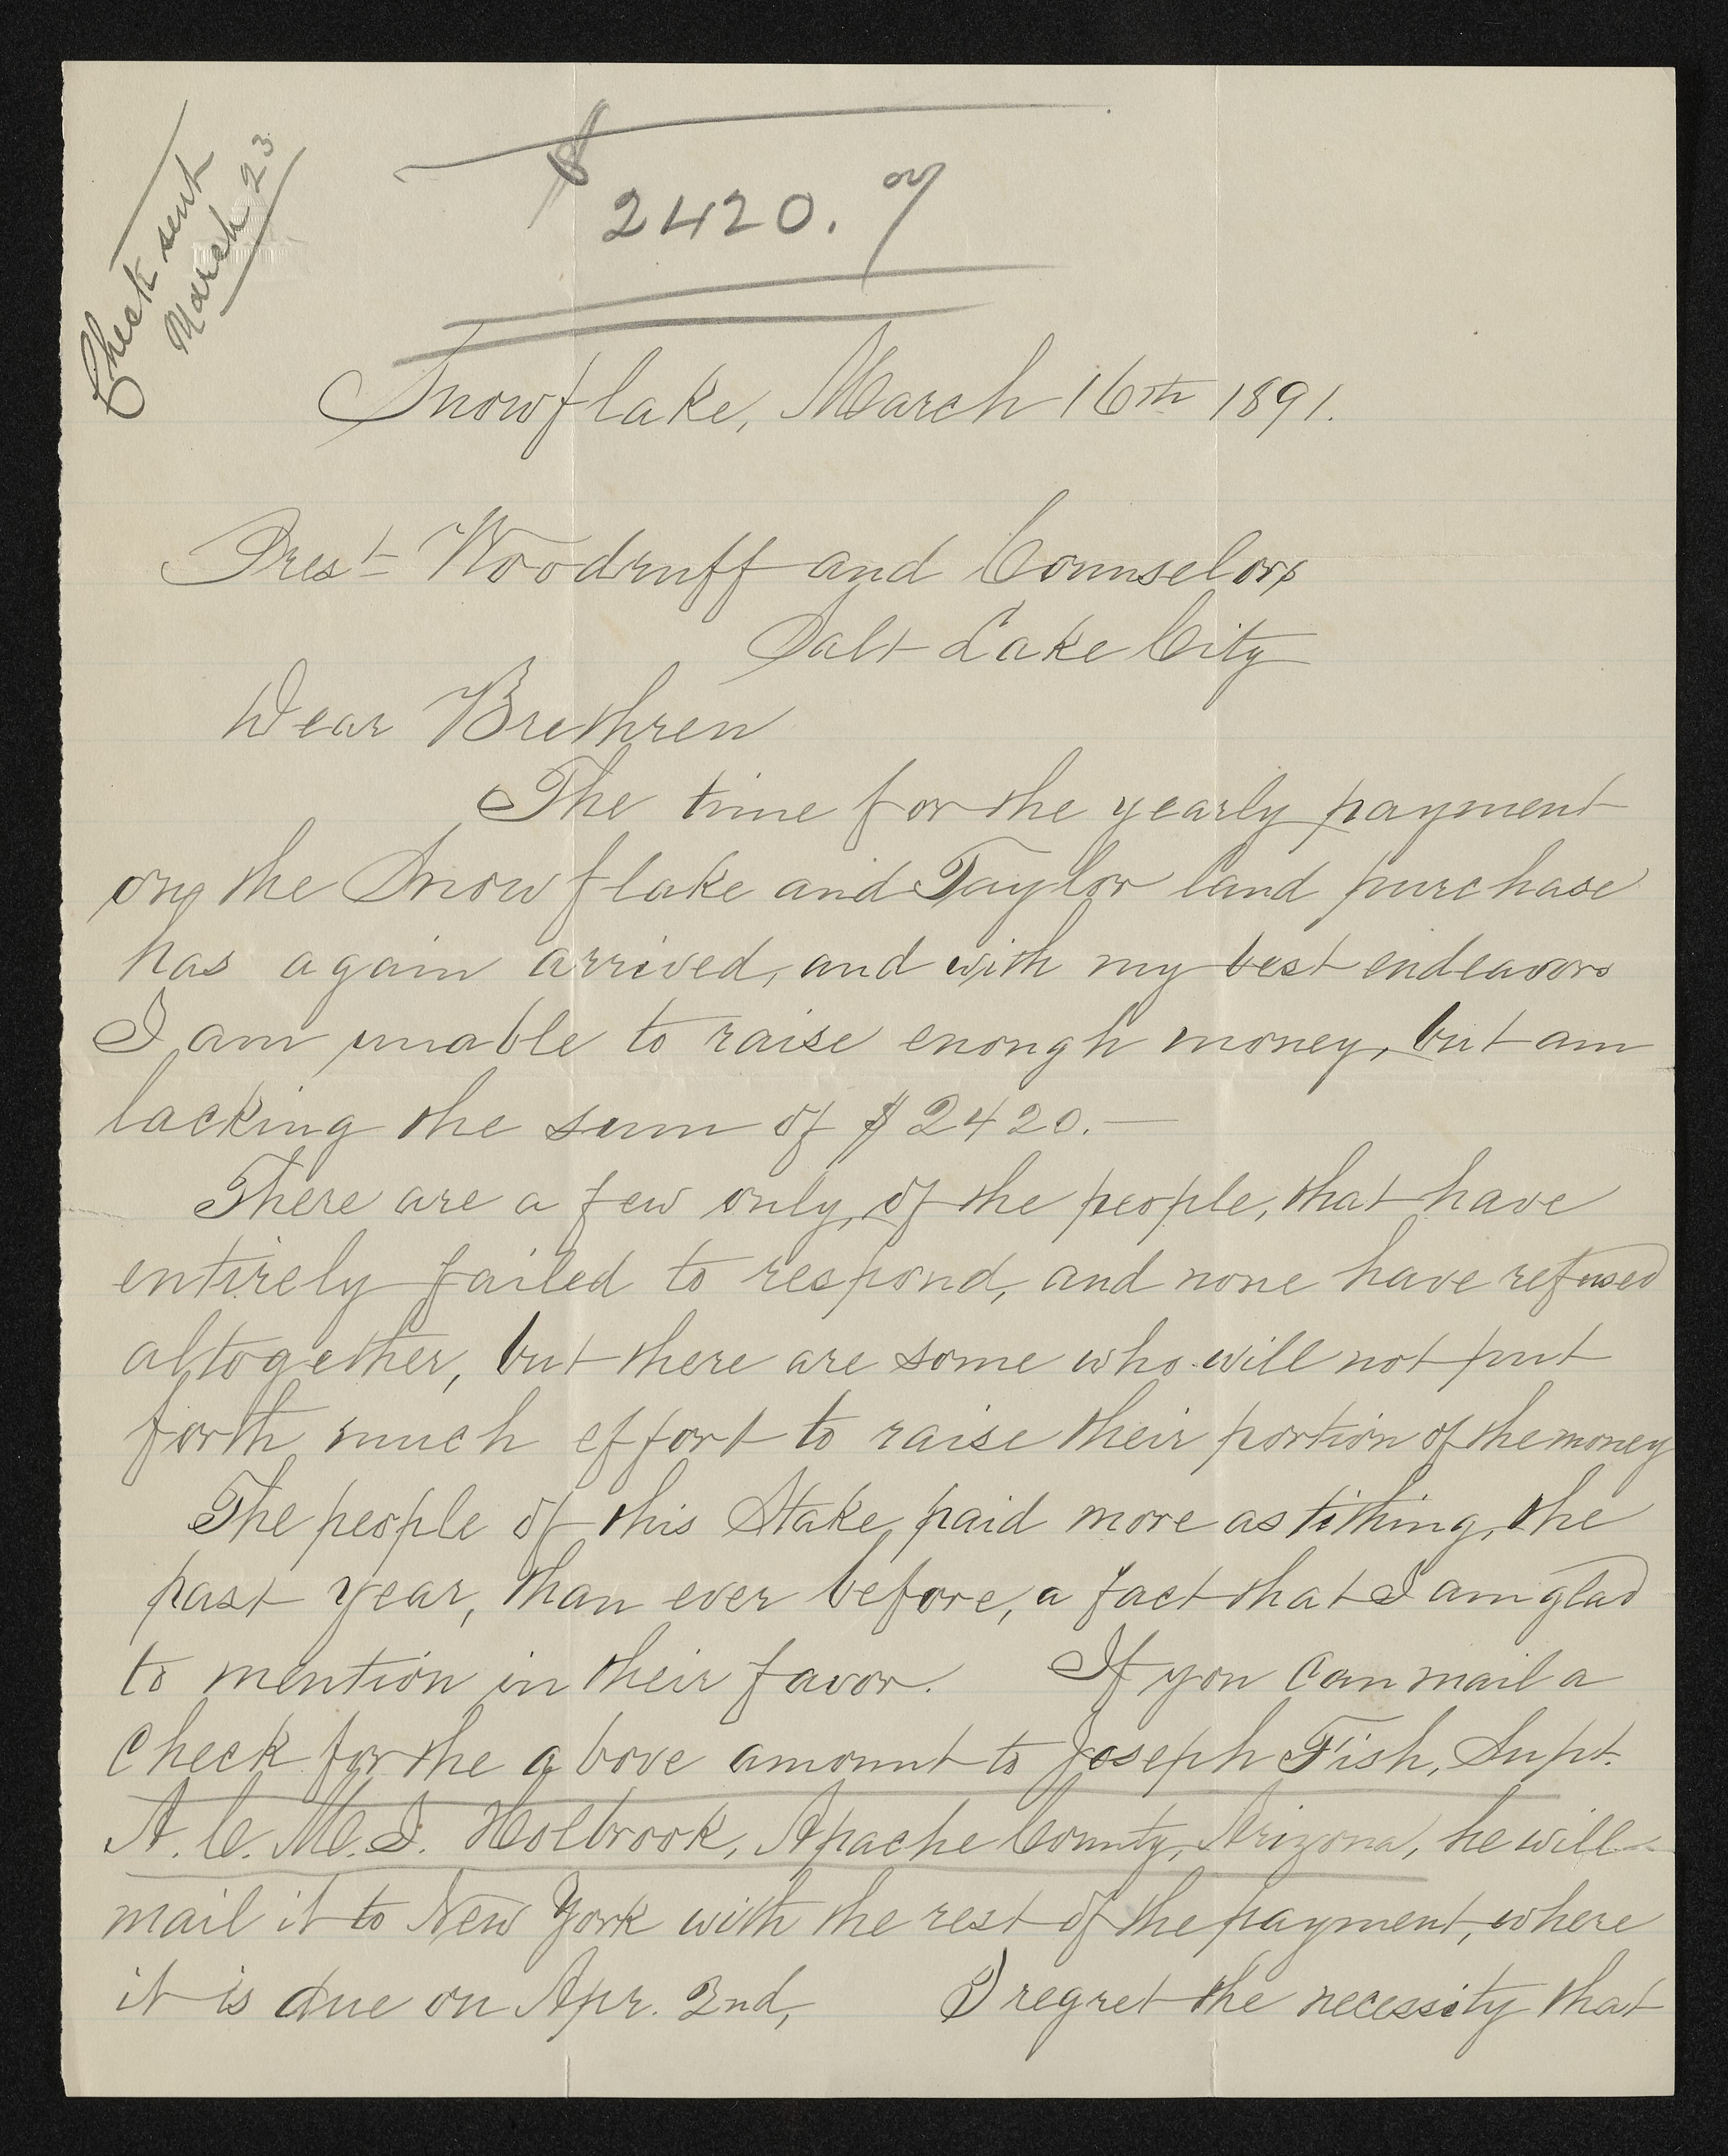 Check sent
March 23
$2420.
Snowflake, March 16th 1891.
Prest Woodruff and Counselors
Salt Lake City
Dear Brethren
The time for the yearly payment
on the Snowflake and Taylor land purchase
has again arrived, and with my best endeavors
I am unable to raise enough money, but am
lacking the sum of $2420.—
There are a few only, of the people, that have
entirely failed to respond, and none have refused
altogether, but there are some who will not put
forth much effort to raise their portion of the money
The people of this Stake, paid more as tithing, the
past year, than ever before, a fact that I am glad
to mention in their favor. If you can mail a
check for the above amount to Joseph Fish, Supt.
A. C. M. I. Holbrook, Apache County, Arizona, he will
mail it to New York with the rest of the payment, where
it is due on Apr. 2nd, I regret the necessity that